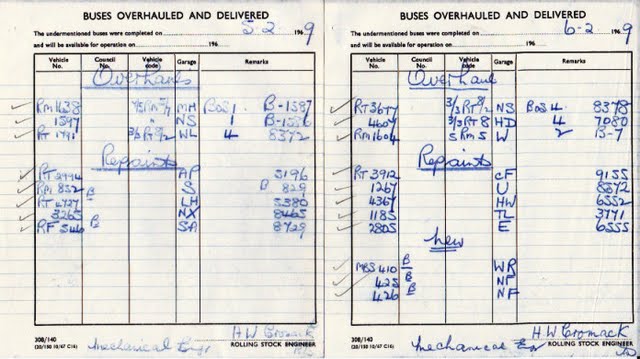 BUSES OVERHAULED AND DELIVERED
The undermentioned buses were completed on 5-2 1969
and will be available for operation on 196
Vehicle No. Council No. Vehicle code) Garage Remarks
Overhauls
RM 1438 MH BOS 1. B-1597
1597 " NS 1
RT 1791 WL 4 8372
Repaints
RT 2794 AP 5196
RM 832 B S B 829
RT 4727 LH 5380
3265 B NX 8465
RF 546 SA 8729
308/140
(20/150 10/67 C16)
Mechanical Engr
H W Cromack
ROLLING STOCK ENGINEER
BUSES OVERHAULED AND DELIVERED
The undermentioned buses were completed on 6-2 1969
and will be available for operation on 196
Vehicle No. Council No. Vehicle code) Garage Remarks
Overhaul
RT 3677 NS BOS 4. 8378
4607 3/3 RT 8 HD 4 7080
RM 1604 5 RM 5 W 2 B-7
Repaints
RT 3912 CF 9155
1267 U 8572
4367 HW 6552
1185 TL 3771
2805 E 6555
New
MBS 410 B WR
425 B NF
426 B NF
308/140
(20/150 10/67 C16)
Mechanical En
H W Cromack
ROLLING STOCK ENGINEER